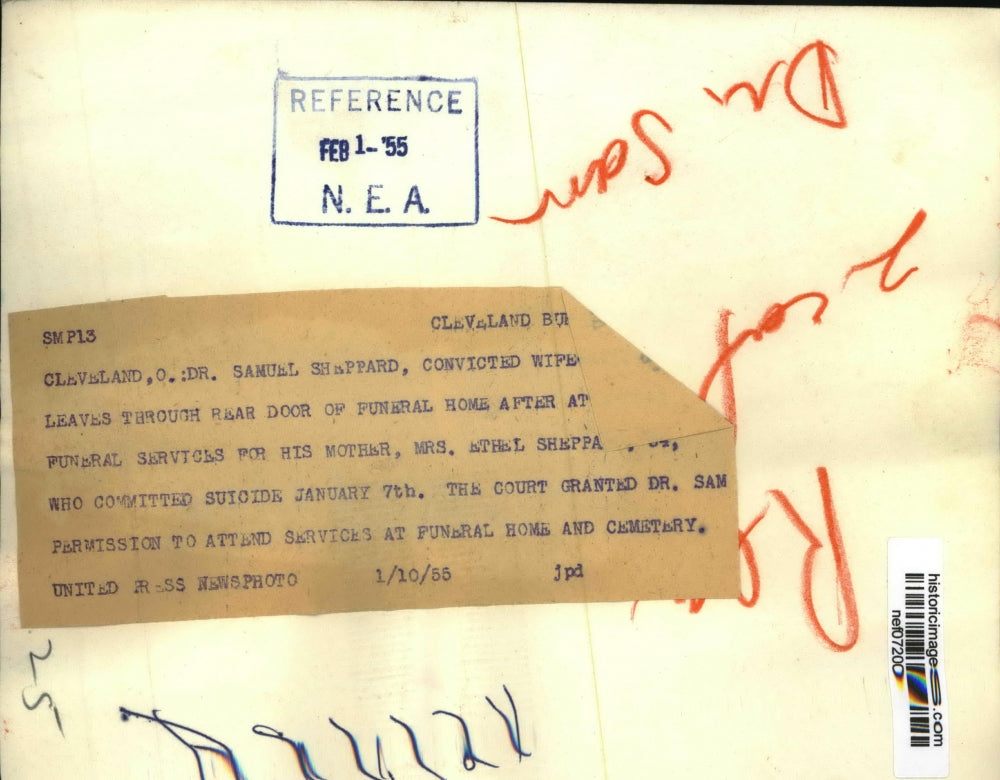 REFERENCE
FEB 1-'55
N. E. A.
Dr.
Sam
SMP13 CLEVELAND BU
CLEVELAND,O.:DR. SAMUEL SHEPPARD, CONVICTED WIFE
LEAVES THROUGH REAR DOOR OF FUNERAL HOME AFTER AT
FUNERAL SERVICES FOR HIS MOTHER, MRS. ETHEL SHEPPA
WHO COMMITTED SUICIDE JANUARY 7th. THE COURT GRANTED DR. SAM
PERMISSION TO ATTEND SERVICES AT FUNERAL HOME AND CEMETERY.
UNITED PRESS NEWSPHOTO 1/10/55 jpd
25
historicimages.com
nef07200